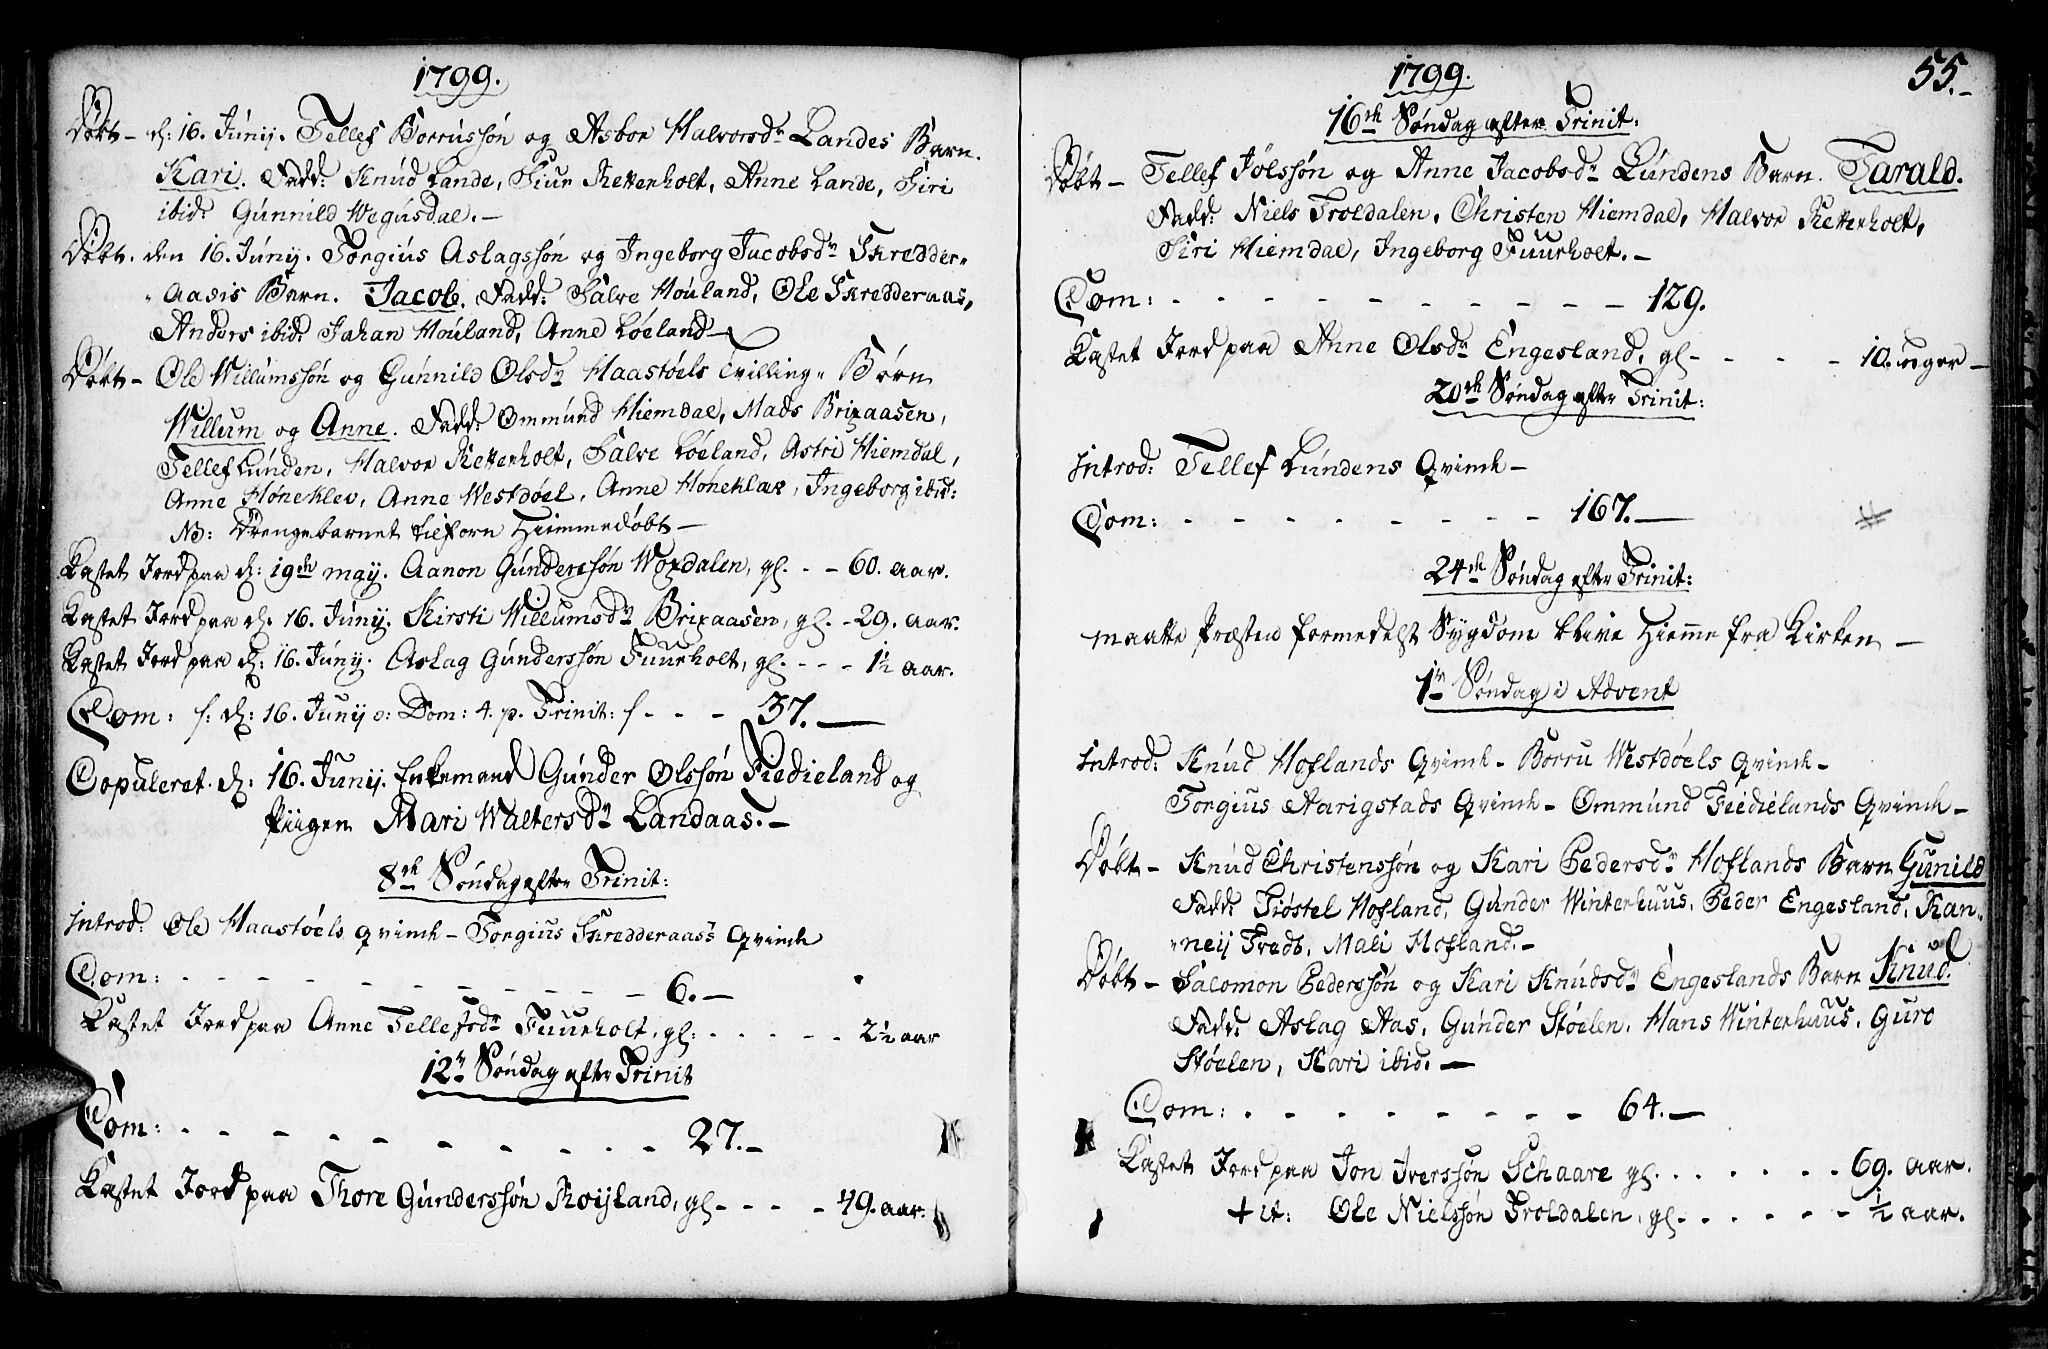 1799.
Döbt – d: 16. Júnij. Tellef Borrússön og Asbor Halvorsdr Landes Barn.
Kari. Fadd: Knúd Lande, Siur Rettenholt, Anne Lande, Siri
ibid: Gúnnild Wegúsdal. –
Döbt. den 16. Júnij. Torgiús Aslagssön og Ingeborg Jacobsdr Skredder-
aasis Barn. Jacob. Fadd: Salve Hoúland, Ole Skredderaas,
Anders ibid: Johan Hoúland, Anne Löeland –
Döbt – Ole Willúmssön og Gúnnild Olsdr Haastöels Tvilling- Börn
Willum og Anne. Fadd: Ommúnd Hiemdal, Mads Brixaasen,
Tellef Lúnden, Halvor Rettenholt, Salve Löeland, Astri Hiemdal,
Anne Höneklev, Anne Westdöel, Anne Höneklev, Ingeborg ibid:
NB: Drengebarnet tilforn Hiemmedöbt –
Kastet Jord paa d: 19de maij. Aanon Gúnderssön Woxdalen, gl. - - 60. aar.
Kastet Jord paa d: 16. Júnij. Kirsti Willumsdr Brixaasen, gl. - 29. aar.
Kastet Jord paa d: 16. Júnij. Aslag Gúnderssön Fuurholt, gl. - - - 1½ aar.
Com: /: d: 16. Junij o: Dom: 4. p. Trinit: / - - - 37. –
Copuleret. d: 16. Junij. Enkemand Gúnder Olssön Fiedieland og
Piigen Mari Waltersdr Landaas. –
8de Söndag efter Trinit:
Introd: Ole Haastöels qvinde – Torgius Skredderaas's qvinde
Com: - - - - - - - - - - - 6. –
Kastet Jord paa Anne Tellefsdr Fuurholt, gl: - - - - - 2½ aar
12te Söndag efter Trinit
Com: - - - - - - - - - - 27. –
Kastet Jord paa Thore Gúnderssön Röijland, gl - - - - 49. aar.
1799.
55. –
16de Söndag efter Trinit:
Döbt – Tellef Jölssön og Anne Jacobsdr Lúndens Barn. Tarald.
Fadd: Niels Troldalen, Christen Hiemdal, Halvor Rettenholt,
Siri Hiemdal, Ingeborg Fuurholt. –
Com: - - - - - - - - - - 129.
Kastet Jord paa Anne Olsdr Engesland, gl - - - - 10. uger –
20de Söndag efter Trinit:
Introd: Tellef Lúndens Qvinde –
Com: - - - - - - - - 167. –
24de Söndag efter Trinit:
maatte Præsten formedelst Sygdom blive Hiemme fra Kirken –
1te Söndag i Advent
Introd: Knúd Hoflands Qvinde – Borru Westdöels Qvinde –
Torgius Aarigstads Qvinde – Ommúnd Fiedielands Qvinde –
Döbt – Knúd Christenssön og Kari Pedersdr Hoflands Barn Gunild
Fadd: Tröstel Hofland, Gúnder Winterhuus, Peder Engesland, Ran-
neij Treds, Mali Hofland. –
Döbt – Salomon Pederssön og Kari Knúdsdr Engeslands Barn Knúd.
Fadd: Aslag Aas, Gúnder Stöelen, Hans Winterhuus, Guro
Stöelen, Kari ibid. –
Com: - - - - - - - - 64. –
Kastet Jord paa Jon Iverssön Schaare gl. - - - - - - 69. aar.
+ it: Ole Nielssön Troldalen, gl. - - - - - - ½ aar.